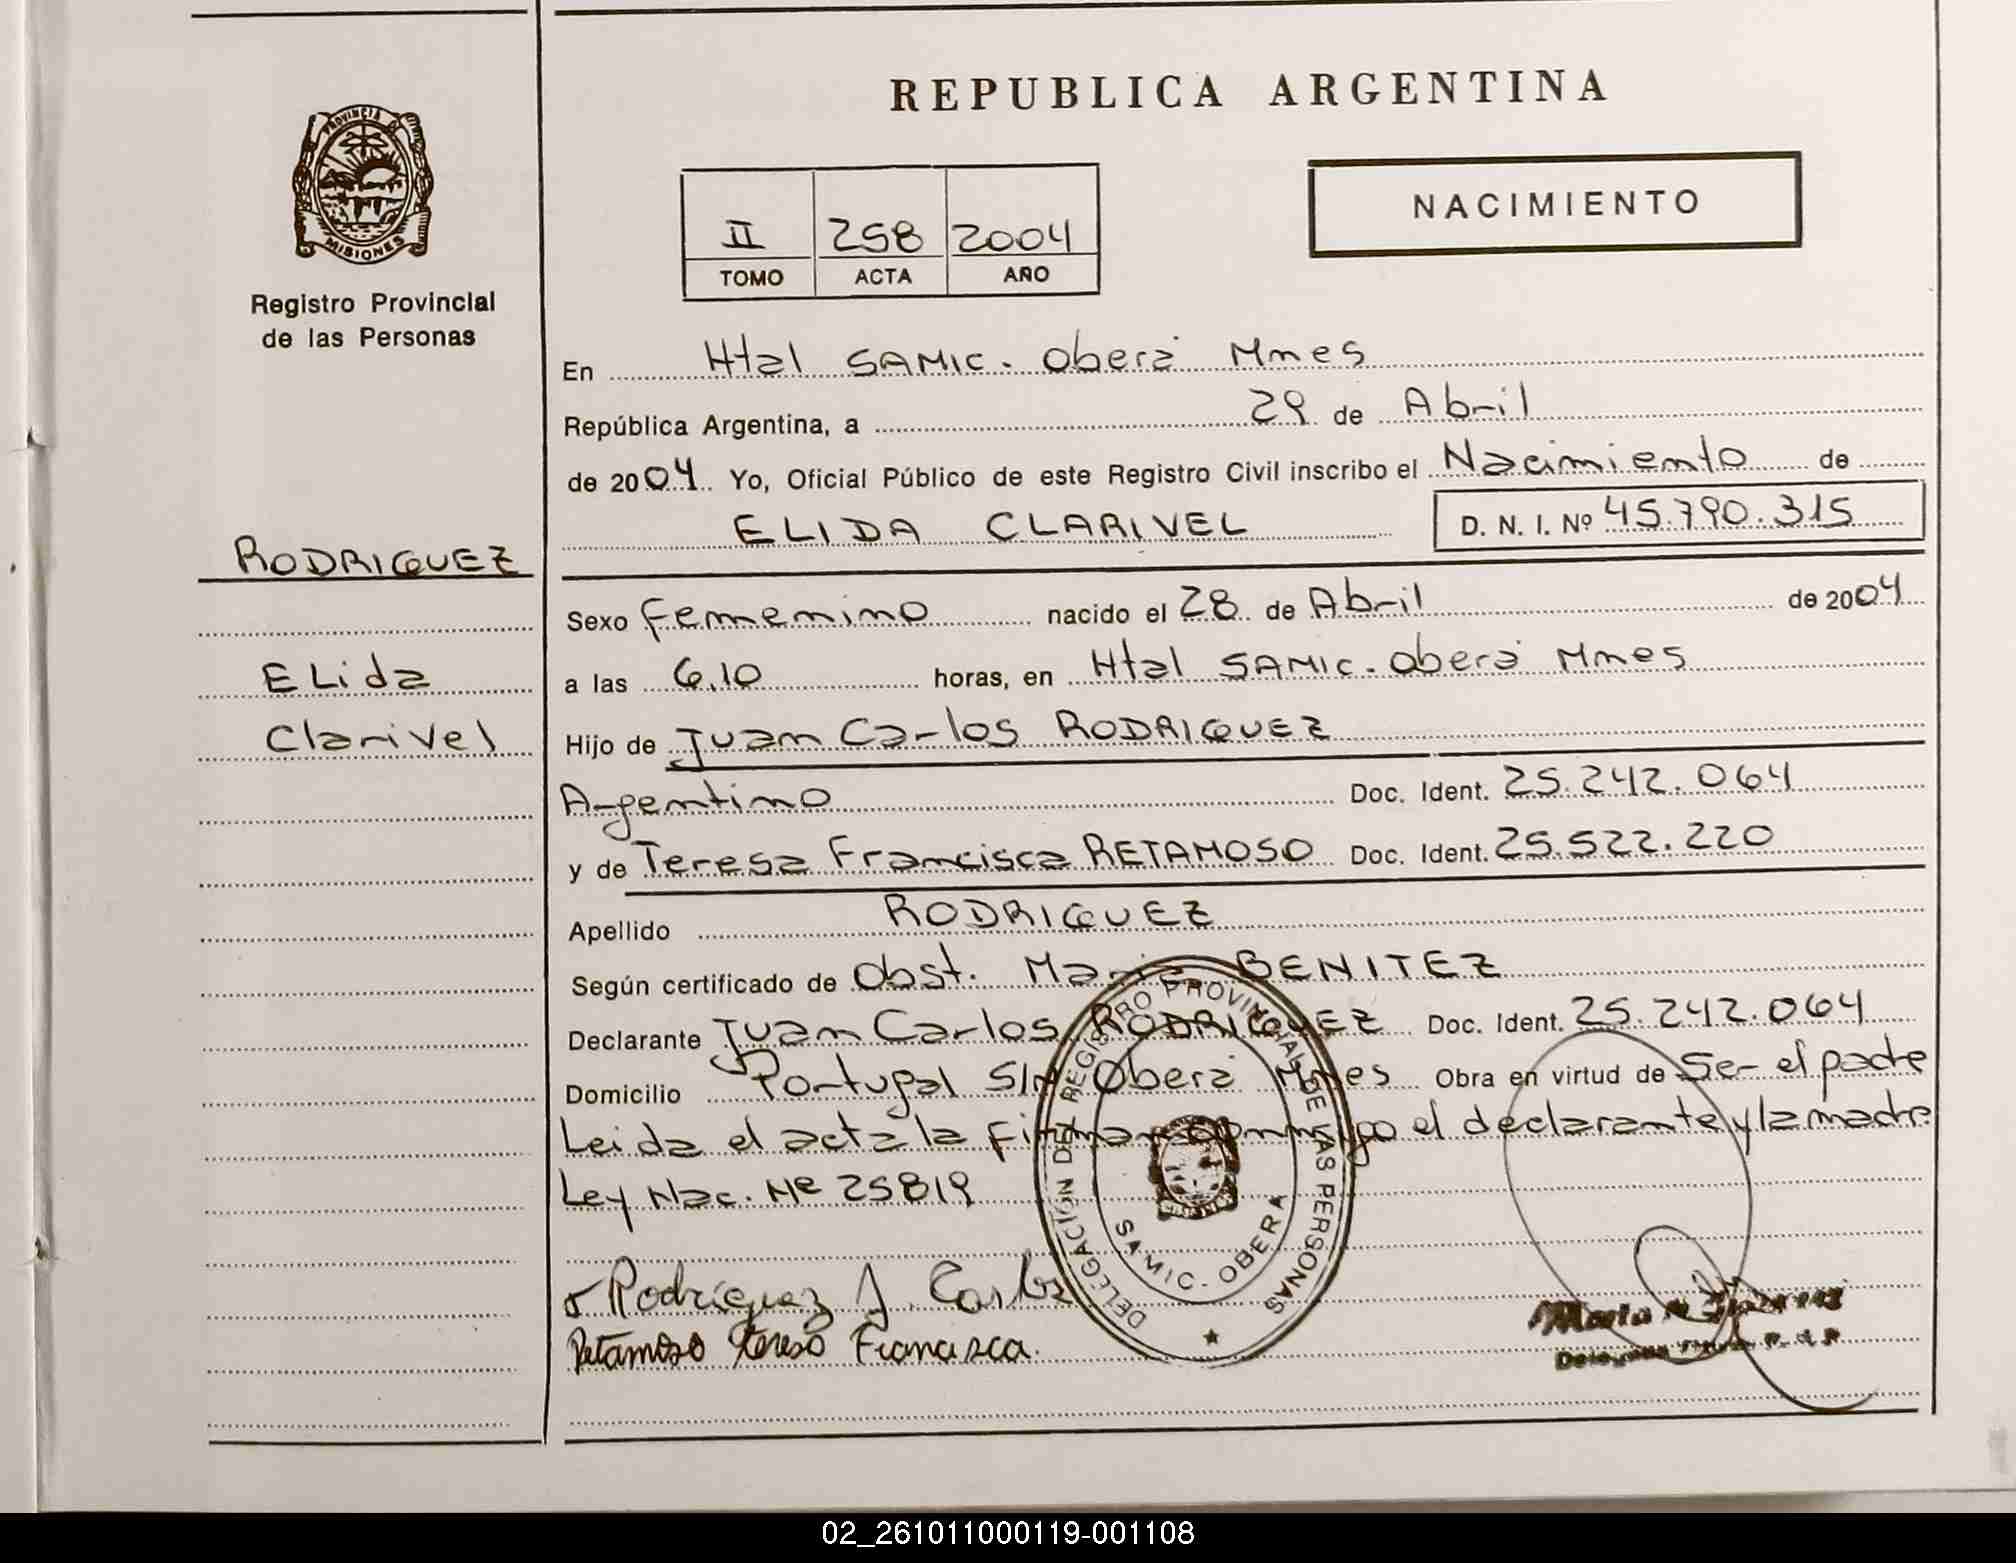 REPUBLICA ARGENTINA
PROVINCIA D
MISIONES
Registro Provincial
de las Personas
II 258 2004
TOMO ACTA AÑO
NACIMIENTO
En Htal SAMIC. Oberá Mnes
República Argentina, a 29 de Abril
de 2004 Yo, Oficial Público de este Registro Civil inscribo el Nacimiento de
ELIDA CLARIVEL D. N. I. Nº 45.790.315
RODRIGUEZ
Elida
Clarivel
Sexo Femenino nacido el 28 de Abril de 2004
a las 6,10 horas, en Htal SAMIC. Oberá Mnes
Hijo de Juan Carlos RODRIGUEZ
Argentino Doc. Ident. 25.242.064
y de Teresa Francisca RETAMOSO Doc. Ident. 25.522.220
Apellido RODRIGUEZ
Según certificado de Obst. Maria BENITEZ
Declarante Juan Carlos RODRIGUEZ Doc. Ident. 25.242.064
Domicilio Portugal S/n Oberá Mnes Obra en virtud de Ser el padre
Leida el acta la firman conmigo el declarante y la madre
Ley Nac. Nº 25819
DELEGACIÓN DEL REGISTRO PROVINCIAL DE LAS PERSONAS
SAMIC. - OBERA
Rodríguez J. Carlos
Retamoso teresa Francisca.
02_261011000119-001108